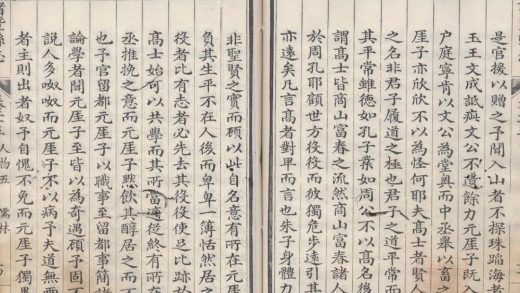 是官援以贈之予聞入山者不探珠蹈海者
玉王文成詆文公不遺餘力元厓子旣入
户庭寧肯以文公為堂奥而中丞舉以畜之
厓子亦欣欣不以為怪何耶夫髙士者賢人
之名非君子履道之極也君子之道平常而
其平常雖德如孔子業如周公不以髙名後
謂髙士皆商山富春之流然商山富春諸人
於周孔耶顧世方役役而彼獨危步遠引其
亦遠矣凡言髙者對卑而言也朱子身體力
非聖賢之實而顧以此自名意有所在元厓
負其生平不在人後而卑卑一簿恬然居之
役者比有志者必先去其役役使足比跡於
髙士始可以共學而其所當適從終有所在
丞推挽之意而元厓子黙飲其醇居之而不
也予官留都元厓子以職事至留都事簡諸
論學者聞元厓子至皆以為竒遇顧予固不
說人多呶呶而元厓子不以病予夫道無兩
者主則出者奴予自愧不免而元厓子獨畧
縣志 人物五 儒林